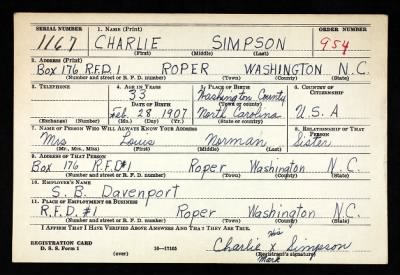 SERIAL NUMBER 1. NAME (Print) ORDER NUMBER
1167 CHARLIE SIMPSON 954
(First) (Middle) (Last)
2. ADDRESS (Print)
Box 176 R.F.D. 1 ROPER WASHINGTON N.C.
(Number and street or R. F. D. number) (Town) (County) (State)
3. TELEPHONE 4. AGE IN YEARS 5. PLACE OF BIRTH 6. COUNTRY OF CITIZENSHIP
33 Washington County
DATE OF BIRTH (Town or county)
Feb. 28 1907 North Carolina U.S.A
(Exchange) (Number) (Mo.) (Day) (Yr.) (State or country)
7. NAME OF PERSON WHO WILL ALWAYS KNOW YOUR ADDRESS 8. RELATIONSHIP OF THAT PERSON
Mrs Louis Norman Sister
(Mr., Mrs., Miss) (First) (Middle) (Last)
9. ADDRESS OF THAT PERSON
Box 176 R.F.D#1 Roper Washington N.C.
(Number and street or R. F. D. number) (Town) (County) (State)
10. EMPLOYER'S NAME
S. B. Davenport
11. PLACE OF EMPLOYMENT OR BUSINESS
R.F.D. #1 Roper Washington N.C.
(Number and street or R. F. D. number) (Town) (County) (State)
I AFFIRM THAT I HAVE VERIFIED ABOVE ANSWERS AND THAT THEY ARE TRUE.
his
REGISTRATION CARD Charlie x Simpson
D. S. S. Form 1 16-17105 (Registrant's signature)
(over) Mark